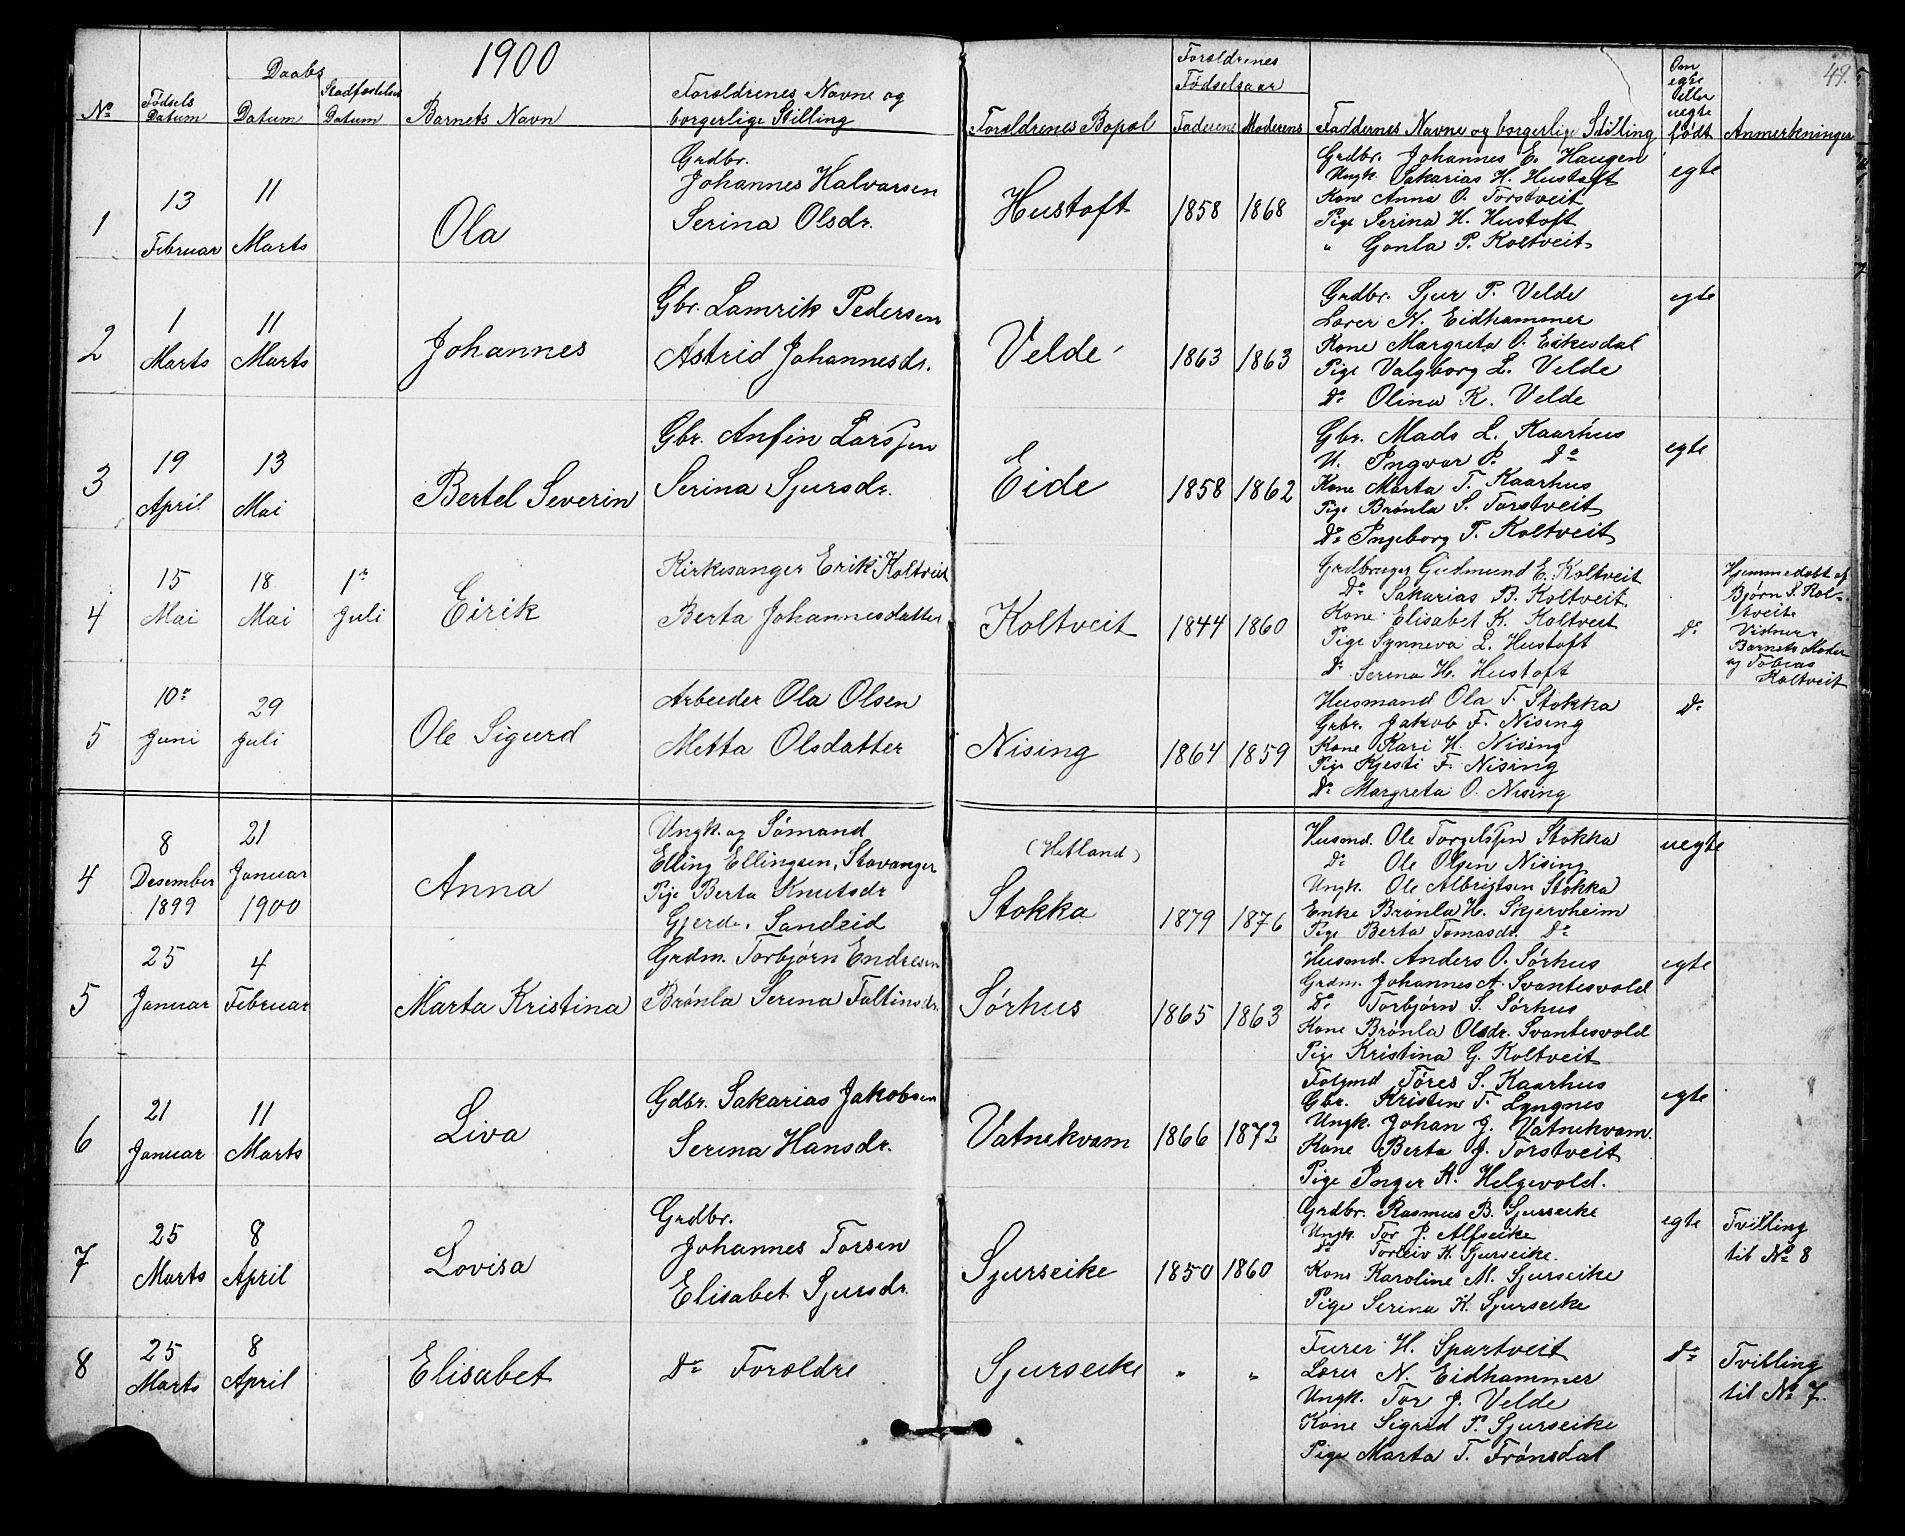 49.
1900
Daabs
Forældrenes Fødselsaar
No
Fødsels Datum
Datum
Stadfæstelses Datum
Barnets Navn
Forældrenes Navne og borgerlige Stilling
Forældrenes Bopæl
Faderens
Moderens
Faddernes Navne og borgerlige Stilling
Om egte eller uegte født
Anmerkninger
1
13 Februar
11 Marts
Ola
Grdbr.
Johannes Halvarsen
Serina Olsdr.
Hustoft
1858
1868
Grdbr. Johannes E. Haugen
Ungk. Sakarias H. Hustoft
Kone Anna O. Torstveit
Pige Serina H. Hustoft
" Gonla P. Koltveit
egte
2
1 Marts
11 Marts
Johannes
Gbr. Lamrik Pedersen
Astrid Johannesdr.
Velde
1863
1863
Grdbr. Sjur P. Velde
Lærer N. Eidhammer
Kone Margreta O. Eikesdal
Pige Valgborg L. Velde
Do Olina K. Velde
egte
3
19 April
13 Mai
Bertel Severin
Gbr. Anfin Larsen
Serina Sjursdr.
Eide
1858
1862
Gbr. Mads L. Kaarhus
U. Ingvar P. Do
Kone Marta T. Kaarhus
Pige Brønla S. Torstveit
Do Ingeborg P. Koltveit
egte
4
15 Mai
18 Mai
1r Juli
Eirik
Kirkesanger Erik Koltveit
Berta Johannesdatter
Koltveit
1844
1860
Grdbruger Gudmund E. Koltveit
Do Sakarias B. Koltveit
Kone Elisabet K. Koltveit
Pige Synneva L. Hustoft
Do Serina H. Hustoft
Do
Hjemmedøbt af
Bjørn S. Kol-
tveit.
Vidner
Barnets Moder
og Tobias
Koltveit
5
10r Juni
29 Juli
Ole Sigurd
Arbeider Ola Olsen
Metta Olsdatter
Nising
1864
1859
Husmand Ola T. Stokka
Grbr. Jakob F. Nising
Kone Kari H. Nising
Pige Kjesti F. Nising
Do Margreta O. Nising
Do
4
8 Desember 1899
21 Januar 1900
Anna
Ungk. og Sømand
Elling Ellingsen, Stavanger
Pige Berta Knutsdr
Gjerde, Sandeid
(Hetland)
Stokka
1879
1876
Husmd. Ole Torgelssen Stokka
Do Ole Olsen Nising
Ungk. Ole Albrigtsen Stokka
Enke Brønla H. Skjervheim
Pige Berta Tomasdr. Do
uegte
5
25 Januar
4 Februar
Marta Kristina
Grdm. Torbjørn Endresen
Brønla Serina Faltinsdr.
Sørhus
1865
1863
Husmd. Anders O. Sørhus
Grdm. Johannes A. Svantesvold
Do Torbjørn S. Sørhus
Kone Brønla Olsdr. Svantesvold
Pige Kristina G. Koltveit
egte
6
21 Januar
11 Marts
Liva
Gdbr. Sakarias Jakobsen
Serina Hansdr.
Vatnekvam
1866
1872
Følgmd Tøres S. Kaarhus
Gbr. Kristen T. Lyngnes
Ungk. Johan J. Vatnekvam.
Kone Berta J. Torstveit
Pige Inger H. Helgevold.
egte
7
25 Marts
8 April
Lovisa
Grdbr.
Johannes Torsen
Elisabet Sjursdr.
Sjurseike
1850
1860
Grdbr. Rasmus B. Sjurseike
Ungk. Tor J. Alfseike
Do Torleiv K. Sjurseike.
Kone Karoline M. Sjurseike
Pige Serina K. Sjurseike
egte
Tvilling
til No 8
8
25 Marts
8 April
Elisabet
Do Forældre
Sjurseike
"
"
Furer H. Spartveit
Lærer N. Eidhammer
Ungk. Tor J. Velde
Kone Sigrid P. Sjurseike
Pige Marta T. Frønsdal
Do
Tvilling
til No 7.